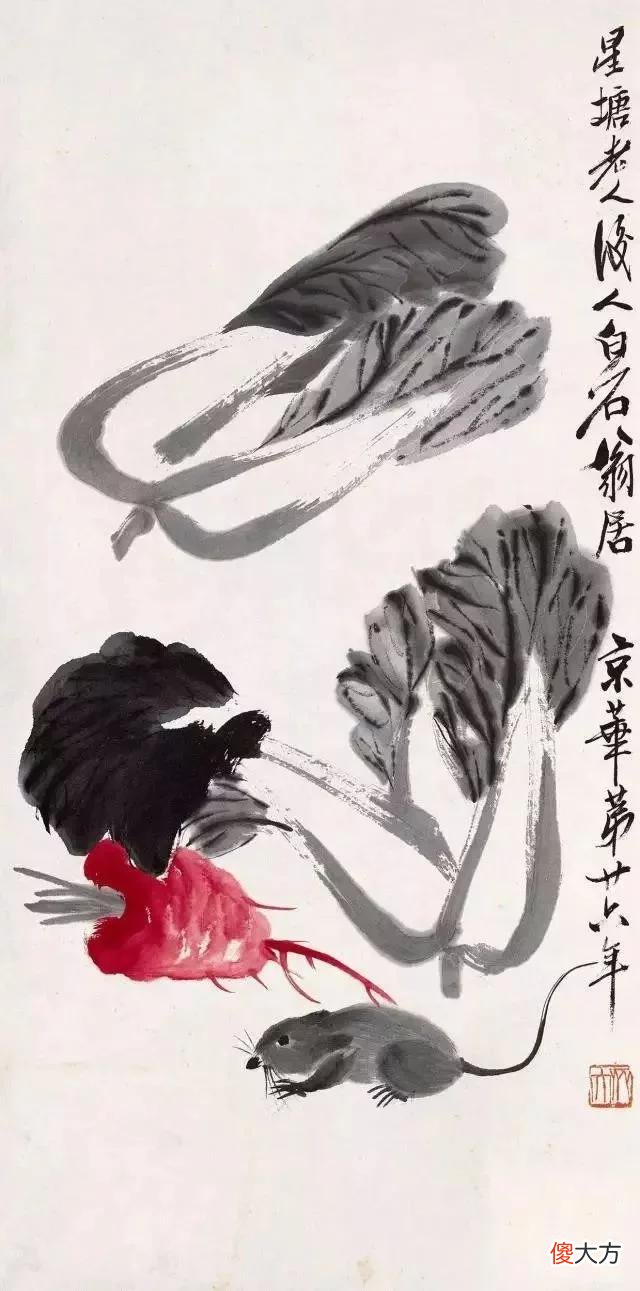 星塘老人後人白石翁居京華第廿六年
傻大方